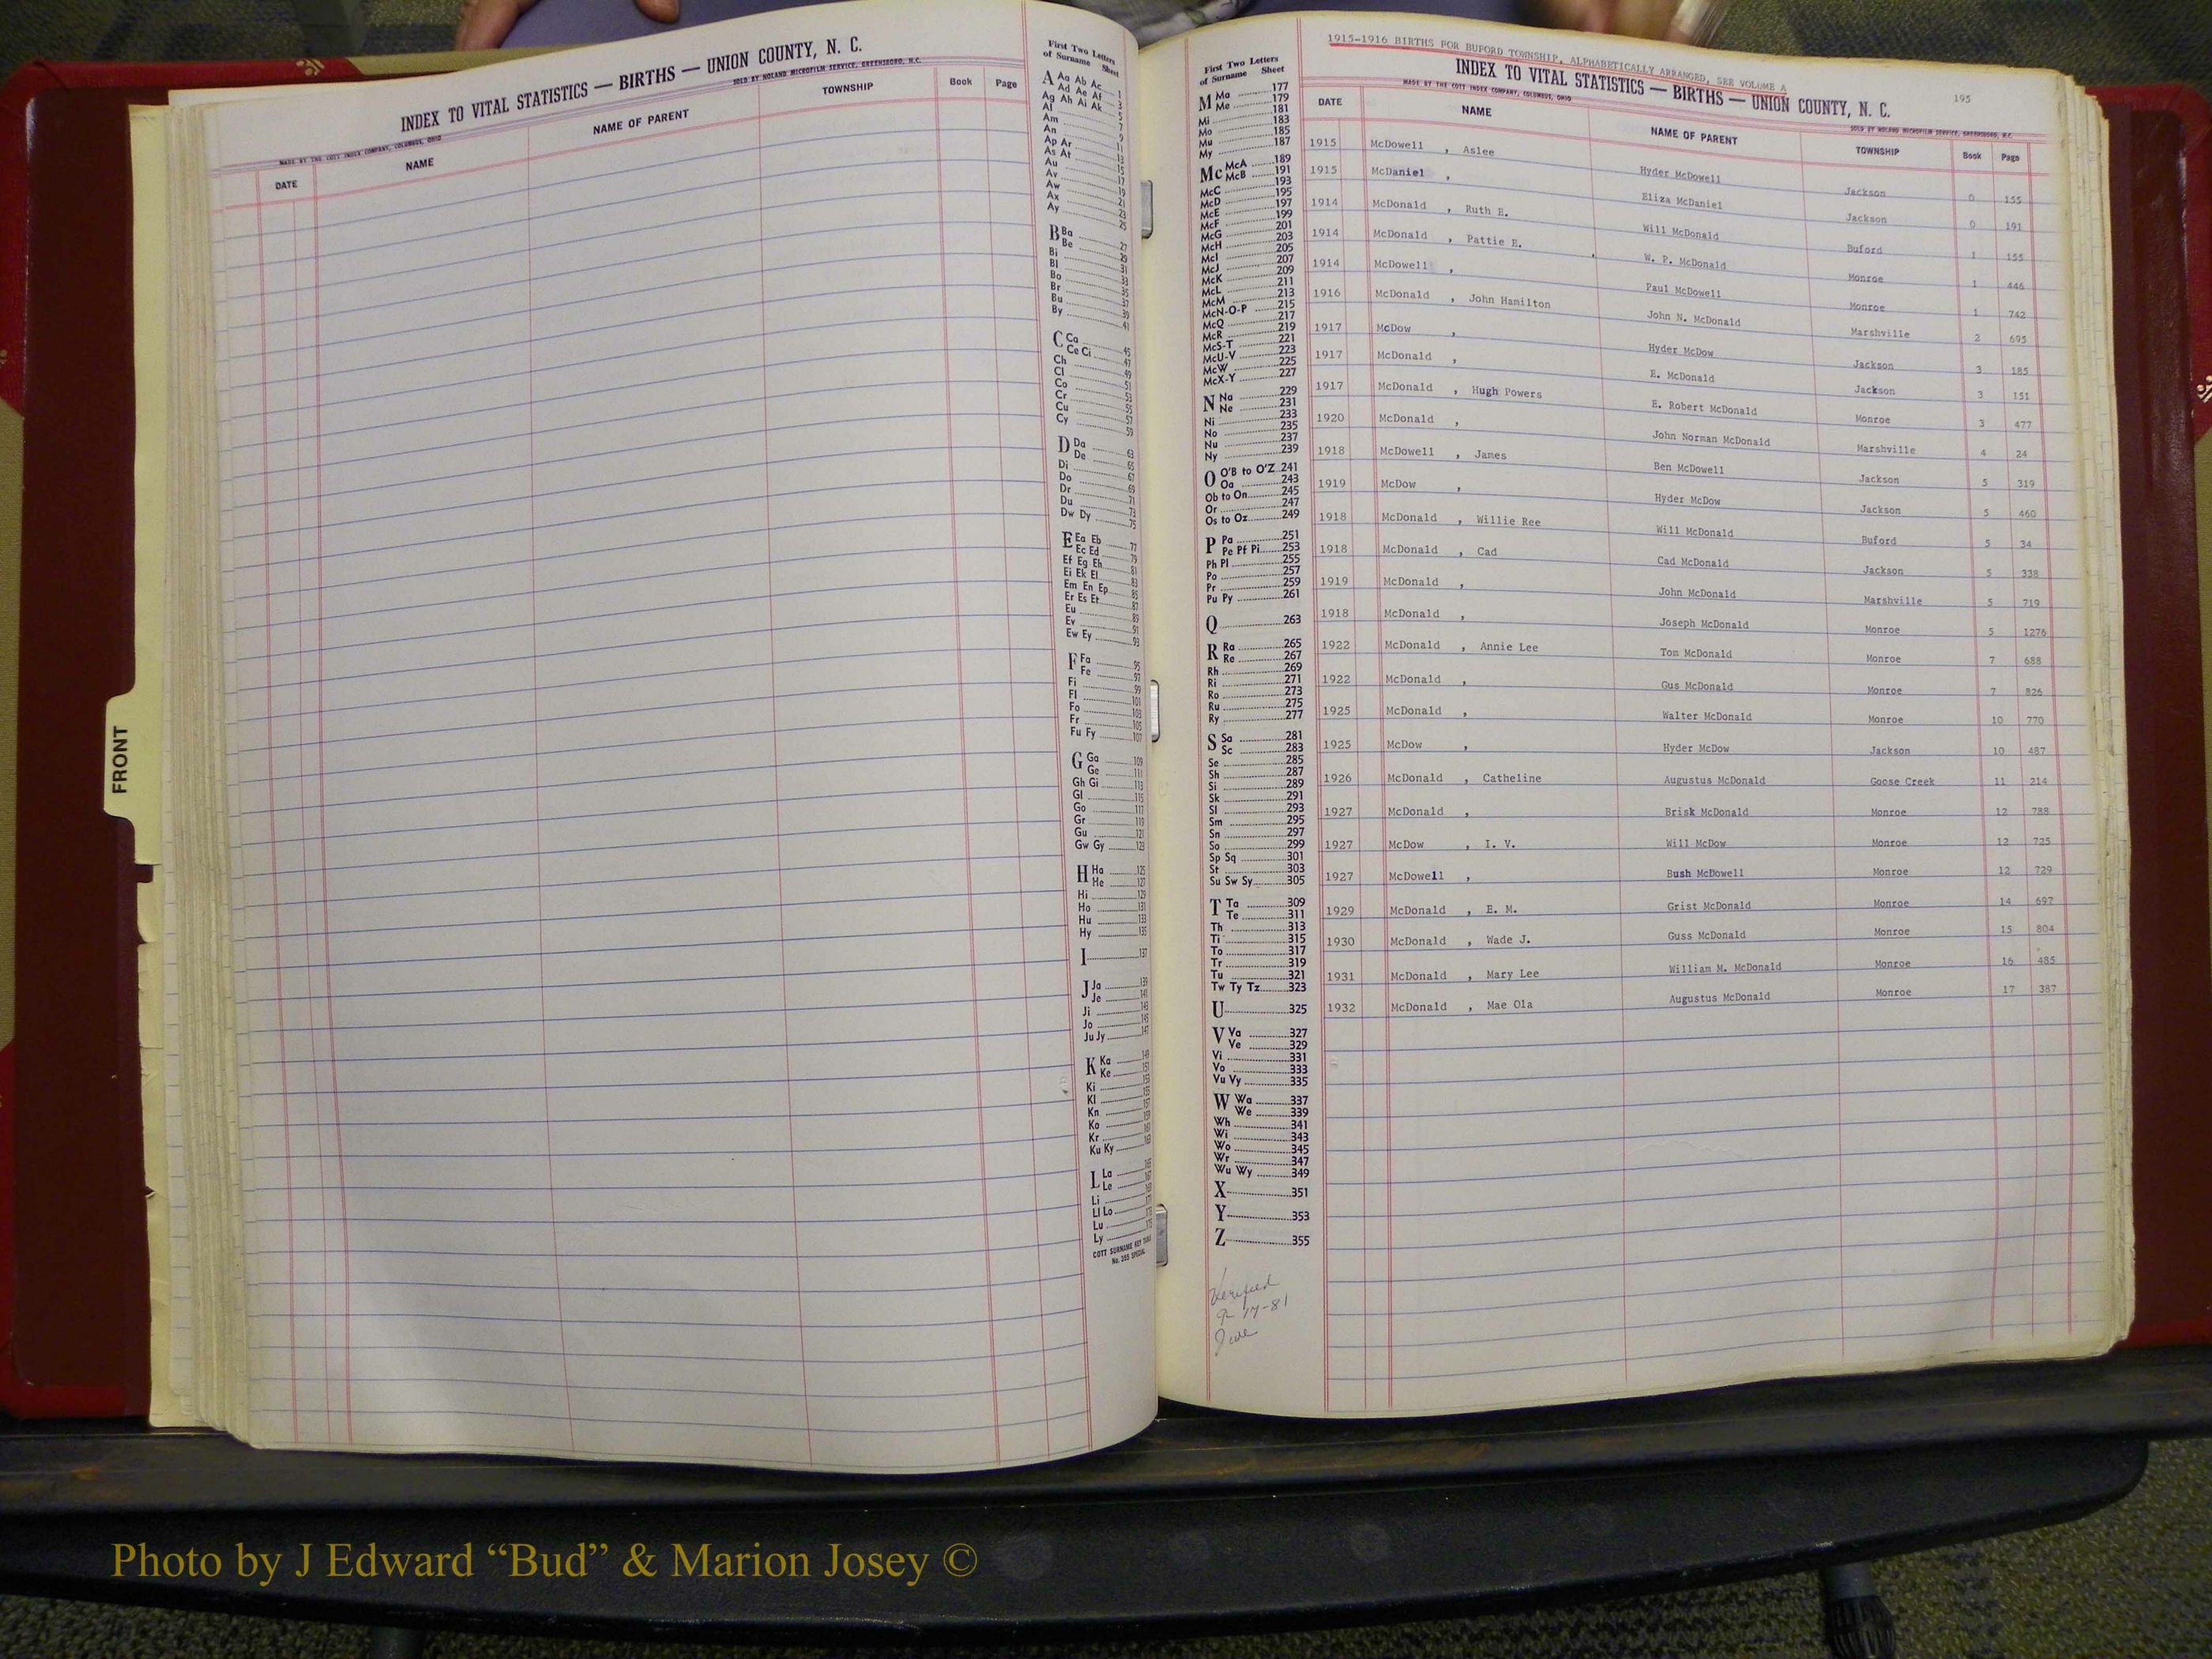 INDEX TO VITAL STATISTICS — BIRTHS — UNION COUNTY, N. C.
MADE BY THE COTT INDEX COMPANY, COLUMBUS, OHIO SOLD BY NOLAND MICROFILM SERVICE, GREENSBORO, N.C.
DATE NAME NAME OF PARENT TOWNSHIP Book Page
First Two Letters
of Surname Sheet
A Aa Ab Ac 1
Ad Ae Af 3
Ag Ah Ai Ak 5
Al 7
Am 9
An 11
Ap Ar 13
As At 15
Au 17
Av 19
Aw 21
Ax 23
Ay 25
B Ba 27
Be 29
Bi 31
Bl 33
Bo 35
Br 37
Bu 39
By 41
C Ca 45
Ce Ci 47
Ch 49
Cl 51
Co 53
Cr 55
Cu 57
Cy 59
D Da 63
De 65
Di 67
Do 69
Dr 71
Du 73
Dw Dy 75
E Ea Eb 77
Ec Ed 79
Ef Eg Eh 81
Ei Ek El 83
Em En Ep 85
Er Es Et 87
Eu 89
Ev 91
Ew Ey 93
F Fa 95
Fe 97
Fi 99
Fl 101
Fo 103
Fr 105
Fu Fy 107
G Ga 109
Ge 111
Gh Gi 113
Gl 115
Go 117
Gr 119
Gu 121
Gw Gy 123
H Ha 125
He 127
Hi 129
Ho 131
Hu 133
Hy 135
I 137
J Ja 139
Je 141
Ji 143
Jo 145
Ju Jy 147
K Ka 149
Ke 151
Ki 153
Kl
Kn
Ko
Kr
Ku Ky
L La
Le
Li
Ll Lo
Lu
Ly
COTT SURNAME KEY TABLE
No. 355 SPECIAL
FRONT
1915-1916 BIRTHS FOR BUFORD TOWNSHIP, ALPHABETICALLY ARRANGED, SEE VOLUME A
INDEX TO VITAL STATISTICS — BIRTHS — UNION COUNTY, N. C. 195
MADE BY THE COTT INDEX COMPANY, COLUMBUS, OHIO SOLD BY NOLAND MICROFILM SERVICE, GREENSBORO, N.C.
First Two Letters
of Surname Sheet
M Ma 177
Me 179
Mi 181
Mo 183
Mu 185
My 187
Mc McA 189
McB 191
McC 193
McD 195
McE 197
McF 199
McG 201
McH 203
McI 205
McJ 207
McK 209
McL 211
McM 213
McN-O-P 215
McQ 217
McR 219
McS-T 221
McU-V 223
McW 225
McX-Y 227
N Na 229
Ne 231
Ni 233
No 235
Nu 237
Ny 239
O O'B to O'Z 241
Oa 243
Ob to On 245
Or 247
Os to Oz 249
P Pa 251
Pe Pf Pi 253
Ph Pl 255
Po 257
Pr 259
Pu Py 261
Q 263
R Ra 265
Re 267
Rh 269
Ri 271
Ro 273
Ru 275
Ry 277
S Sa 281
Sc 283
Se 285
Sh 287
Si 289
Sk 291
Sl 293
Sm 295
Sn 297
So 299
Sp Sq 301
St 303
Su Sw Sy 305
T Ta 309
Te 311
Th 313
Ti 315
To 317
Tr 319
Tu 321
Tw Ty Tz 323
U 325
V Va 327
Ve 329
Vi 331
Vo 333
Vu Vy 335
W Wa 337
We 339
Wh 341
Wi 343
Wo 345
Wr 347
Wu Wy 349
X 351
Y 353
Z 355
Verified
9-17-81
DATE NAME NAME OF PARENT TOWNSHIP Book Page
1915 McDowell , Aslee Hyder McDowell Jackson 0 155
1915 McDaniel , Eliza McDaniel Jackson 0 191
1914 McDonald , Ruth E. Will McDonald Buford 1 155
1914 McDonald , Pattie E. W. P. McDonald Monroe 1 446
1914 McDowell , Paul McDowell Monroe 1 742
1916 McDonald , John Hamilton John N. McDonald Marshville 2 695
1917 McDow , Hyder McDow Jackson 3 185
1917 McDonald , E. McDonald Jackson 3 151
1917 McDonald , Hugh Powers E. Robert McDonald Monroe 3 477
1920 McDonald , John Norman McDonald Marshville 4 24
1918 McDowell , James Ben McDowell Jackson 5 319
1919 McDow , Hyder McDow Jackson 5 460
1918 McDonald , Willie Ree Will McDonald Buford 5 34
1918 McDonald , Cad Cad McDonald Jackson 5 338
1919 McDonald , John McDonald Marshville 5 719
1918 McDonald , Joseph McDonald Monroe 5 1276
1922 McDonald , Annie Lee Tom McDonald Monroe 7 688
1922 McDonald , Gus McDonald Monroe 7 826
1925 McDonald , Walter McDonald Monroe 10 770
1925 McDow , Hyder McDow Jackson 10 487
1926 McDonald , Catheline Augustus McDonald Goose Creek 11 214
1927 McDonald , Brisk McDonald Monroe 12 788
1927 McDow , I. V. Will McDow Monroe 12 725
1927 McDowell , Bush McDowell Monroe 12 729
1929 McDonald , E. M. Grist McDonald Monroe 14 697
1930 McDonald , Wade J. Guss McDonald Monroe 15 804
1931 McDonald , Mary Lee William M. McDonald Monroe 16 485
1932 McDonald , Mae Ola Augustus McDonald Monroe 17 387
Photo by J Edward “Bud” & Marion Josey ©